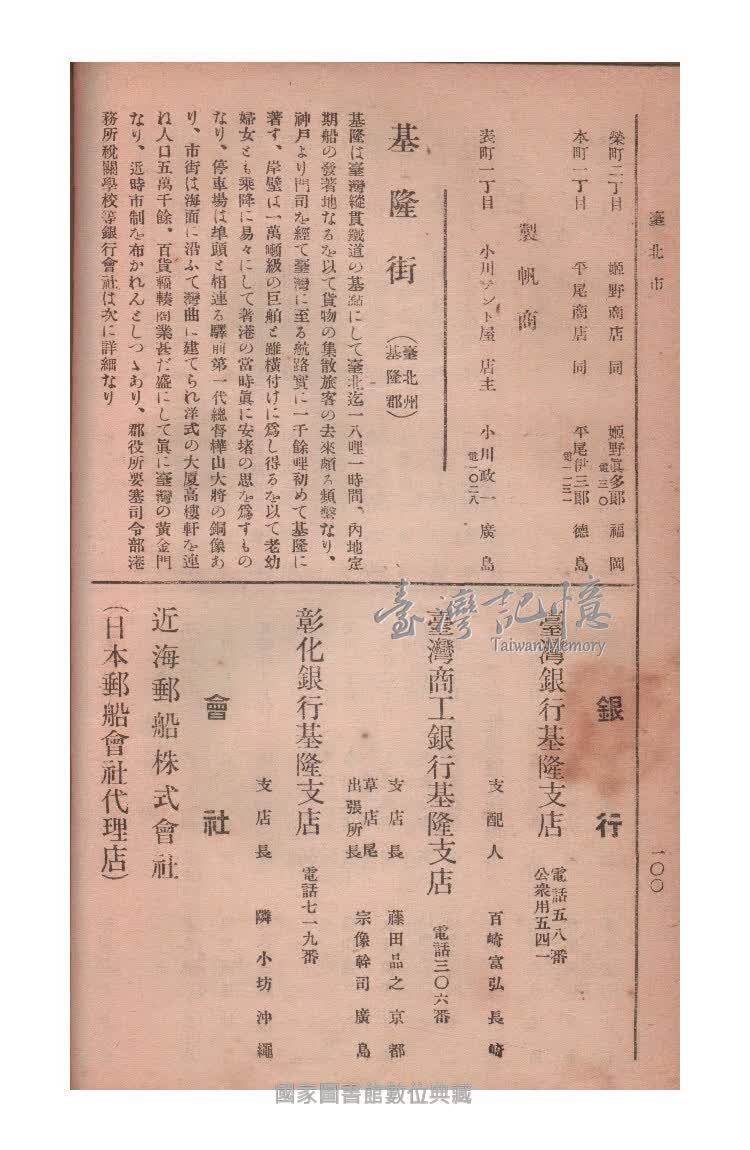 臺北市
榮町二丁目 姬野商店 同 姬野眞多郞 福岡
電三〇
本町一丁目 平尾商店 同 平尾伊三郞 德島
電一一三一
製帆商
表町一丁目 小川テント屋 店主 小川政一 廣島
電一〇二八
基隆街 (臺北州基隆郡)
基隆は臺灣縱貫鐵道の基點にして臺北迄一八哩一時間、內地定
期船の發著地なるを以て貨物の集散旅客の去來頗る頻繫なり、
神戶より門司を經て臺灣に至る航路實に一千餘哩初めて基隆に
著す、岸壁は一萬噸級の巨舶と雖橫付けに爲し得るを以て老幼
婦女とも乘降に易々にして著港の當時眞に安堵の思を爲すもの
なり、停車場は埠頭と相連る驛前第一代總督樺山大將の銅像あ
り、市街は海面に沿ふて灣曲に建てられ洋式の大厦高樓軒を連
ね人口五萬千餘、百貨輻輳商業甚だ盛にして眞に臺灣の黃金門
なり、近時市制を布かれんとしつゝあり、郡役所要塞司令部港
務所稅關學校等銀行會社は次に詳細なり
一〇〇
銀行
臺灣銀行基隆支店 電話五八番
公衆用五四一
支配人 百崎富弘 長崎
臺灣商工銀行基隆支店 電話三〇六番
支店長 藤田品之 京都
草店尾出張所長 宗像幹司 廣島
彰化銀行基隆支店 電話七一九番
支店長 隣小坊 沖繩
會社
近海郵船株式會社
(日本郵船會社代理店)
臺灣記憶
Taiwan Memory
國家圖書館數位典藏